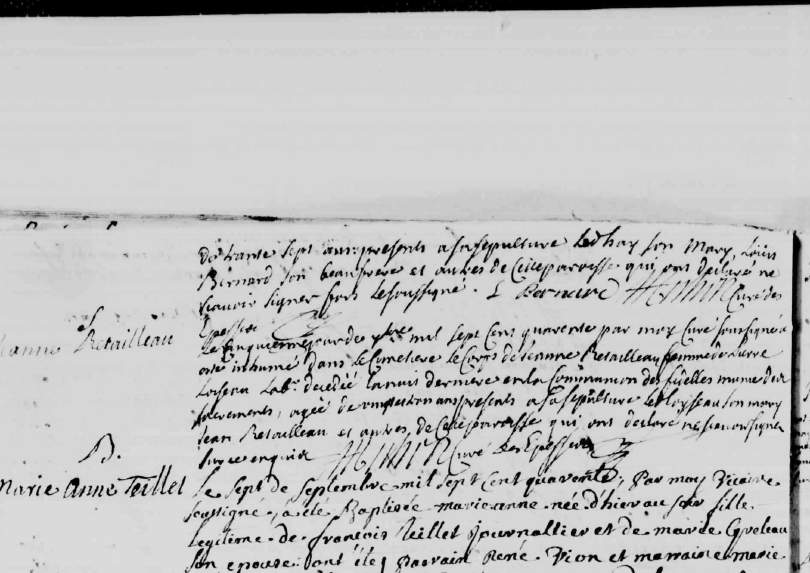 de trante sept ans presents a sa sepulture led hay son Mary, Louis
Bernard son beaufrere et autres de Cette paroisse qui ont declaré ne
scavoir signer fors le soussigné. L Bernard Curé des
Epesses
S
Retailleau
Le cinquieme jour de 7bre mil sept Cens quarente par moy Curé soussigné a
esté inhumé dans le Cometiere le Corps de Jeanne Retailleau femme de
Loiseau Lab. decedée la nuit derniere en la Communion des fidelles munie de
sacrements, agée de ans presents a sa sepulture le Loyseau son mary
Jean Retailleau et autres de Cette paroisse qui ont declaré ne scavoir signer
de ce enquis Curé des Epesses
B.
Marie Anne Teillet
Le Sept de Septembre mil Sept Cent quarente, par moy Vicaire
soussigné, a été Baptisée marie anne née d'hier au soir fille
legitime de françois Teillet journallier et de marie
son epouse: ont été parrain René Vion et marraine marie